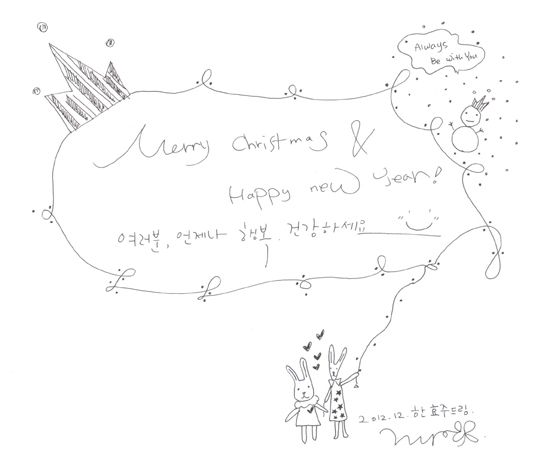 Always
Be with you
Merry Christmas &
Happy new year!
여러분, 언제나 행복. 건강하세요
2012.12. 한효주드림.